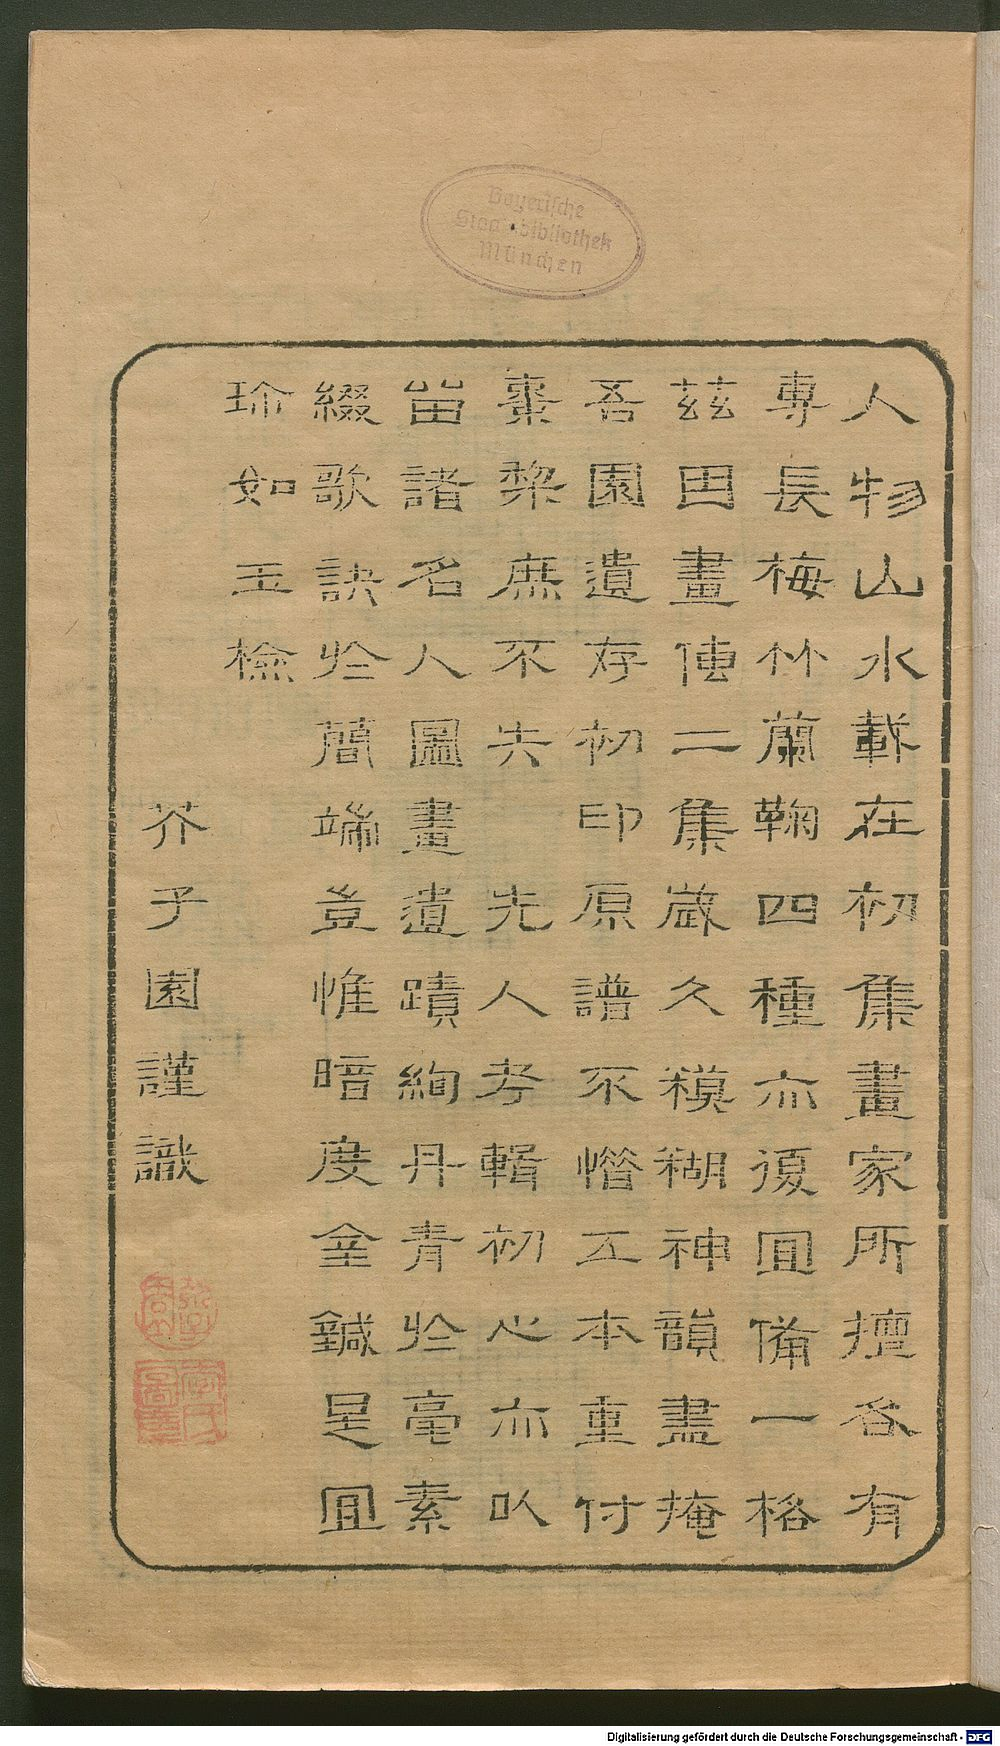 Bayerische
Staatsbibliothek
München
人物山水載在初集畫家所擅各有
專長梅竹蘭鞠四種亦復宜備一格
茲因畫傳二集歲久糢糊神韻盡掩
吾園遺存初印原譜不惜工本重付
棗棃庶不失 先人考輯初心亦以
畱諸名人圖畫遺蹟絢丹青於毫素
綴歌訣於簡端豈惟暗度金鍼是宜
珍如玉檢
芥子園謹識
Digitalisierung gefördert durch die Deutsche Forschungsgemeinschaft - DFG